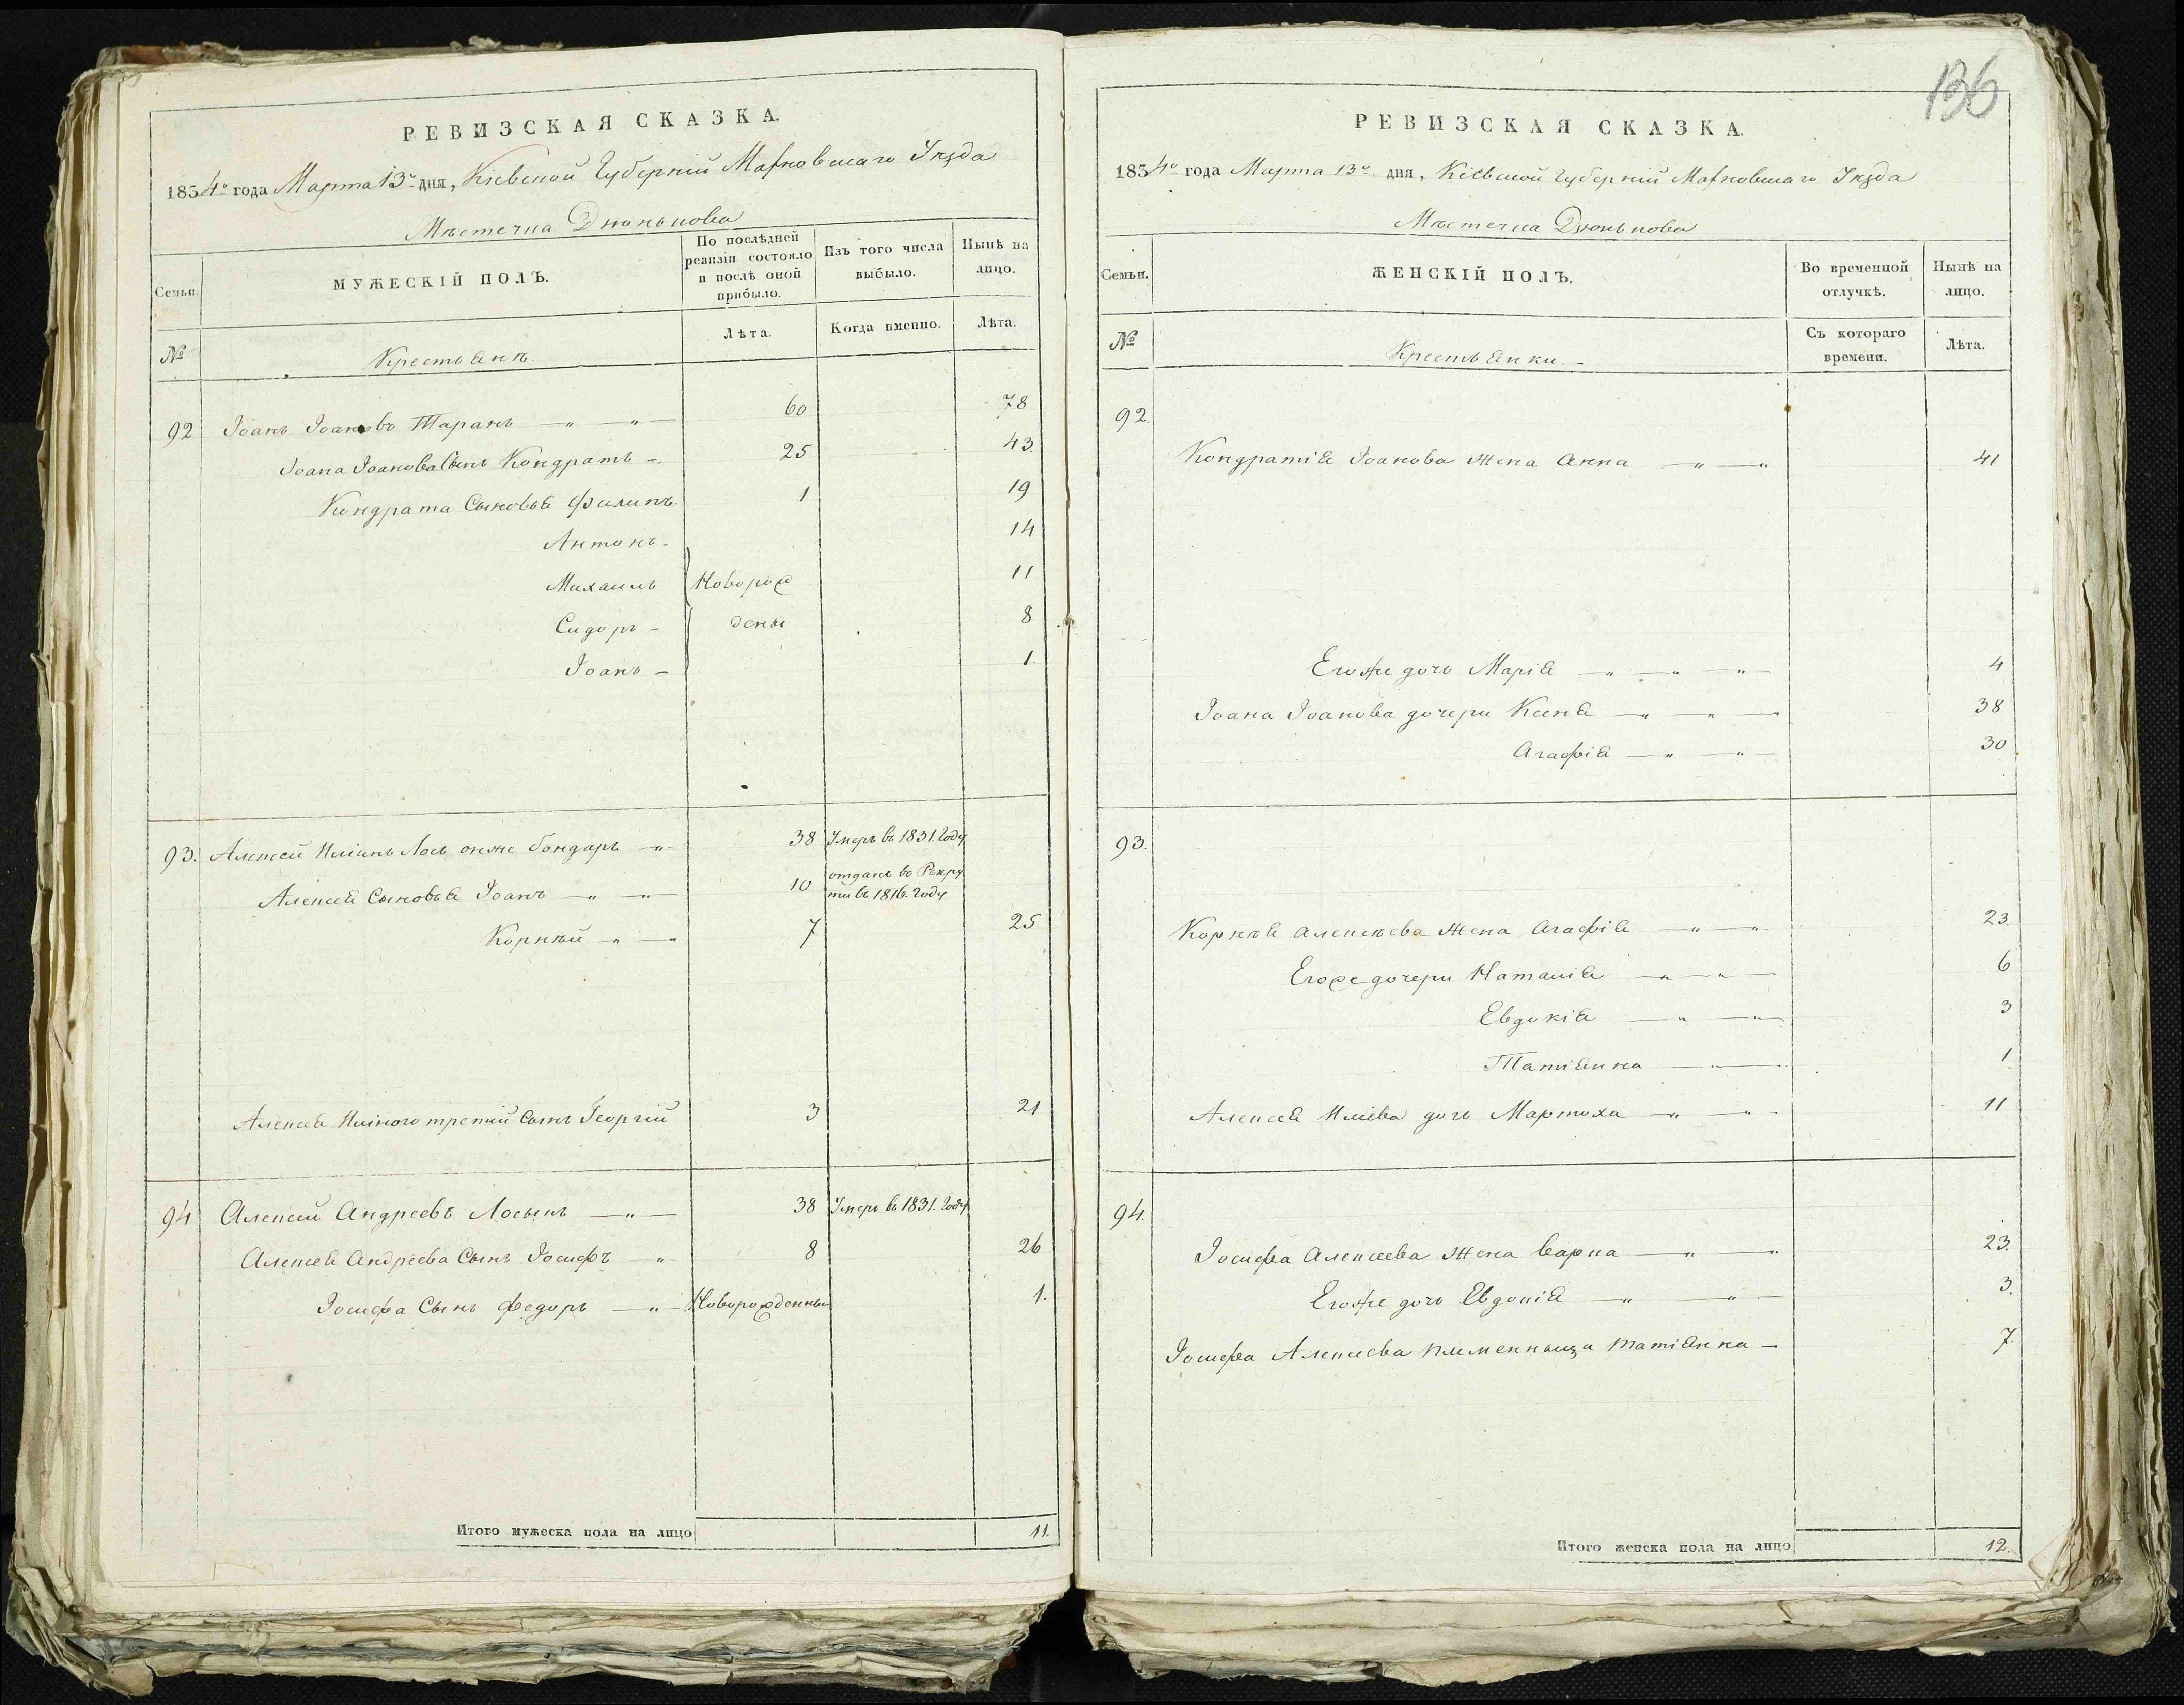 РЕВИЗСКАЯ СКАЗКА.
1834го года Марта 13го дня, Кіевской Губерніи Махновскаго Уѣзда
Мѣстечка Дзюнькова
Семьи.
МУЖЕСКІЙ ПОЛЪ.
По послѣдней ревизіи состояло и послѣ оной прибыло.
Изъ того числа выбыло.
Нынѣ на лицо.
№
Крестьянѣ.
Лѣта.
Когда именно.
Лѣта.
92 Іоанъ Іоановъ Таранъ — „ — „ — 60 78
Іоана Іоанова Сынъ Кондратъ -. 25 43.
Кондрата Сыновья Филипъ. 1 19
Антонъ - 14
Михаилъ Новорож 11
Сидоръ - дены 8
Іоанъ - 1.
93. Алексей Иліинъ Лось онже бондарь „ 38 Умеръ въ 1831. Году
Алексея Сыновья Іоанъ — „ — „ 10 отданъ въ Рекру
ти въ 1816. Году
Корнѣй - „ — 7 25
Алексея Иліиного третій Сынъ Георгій 3 21
94 Алексей Андреевъ Лосынъ — „ — 38 Умеръ въ 1831. Году
Алексея Андреева Сынъ Іосифъ — „ 8 26
Іосифа Сынъ Федоръ — „ — Новорожденный 1.
Итого мужеска пола на лицо 11.
136
РЕВИЗСКАЯ СКАЗКА.
1834го года Марта 13го дня, Кіевской Губерніи Махновскаго Уѣзда
Мѣстечка Дзюнькова
Семьи.
ЖЕНСКІЙ ПОЛЪ.
Во временной отлучкѣ.
Нынѣ на лицо.
№
Крестьянки. -
Съ котораго времени.
Лѣта.
92
Кондратія Іоанова Жена Анна — „ — „ 41
Егоже дочь Марія — „ — „ — „ — 4
Іоана Іоанова дочери Ксеня — „ — „ — 38
Агафія — „ — „ — 30
93.
Корнѣя Алексѣева Жена Агафія — „ — „ 23.
Егоже дочери Наталія — „ — „ — 6
Евдокія — „ — „ 3
Татіянна — — 1
Алексея Иліева дочь Мартоха — „ — „ - 11
94.
Іосифа Алексеева Жена Варка — „ — „ 23.
Егоже дочь Евдокія — „ — „ — 3.
Іосифа Алексеева племенныца Татіянна — 7.
Итого женска пола на лицо 12.